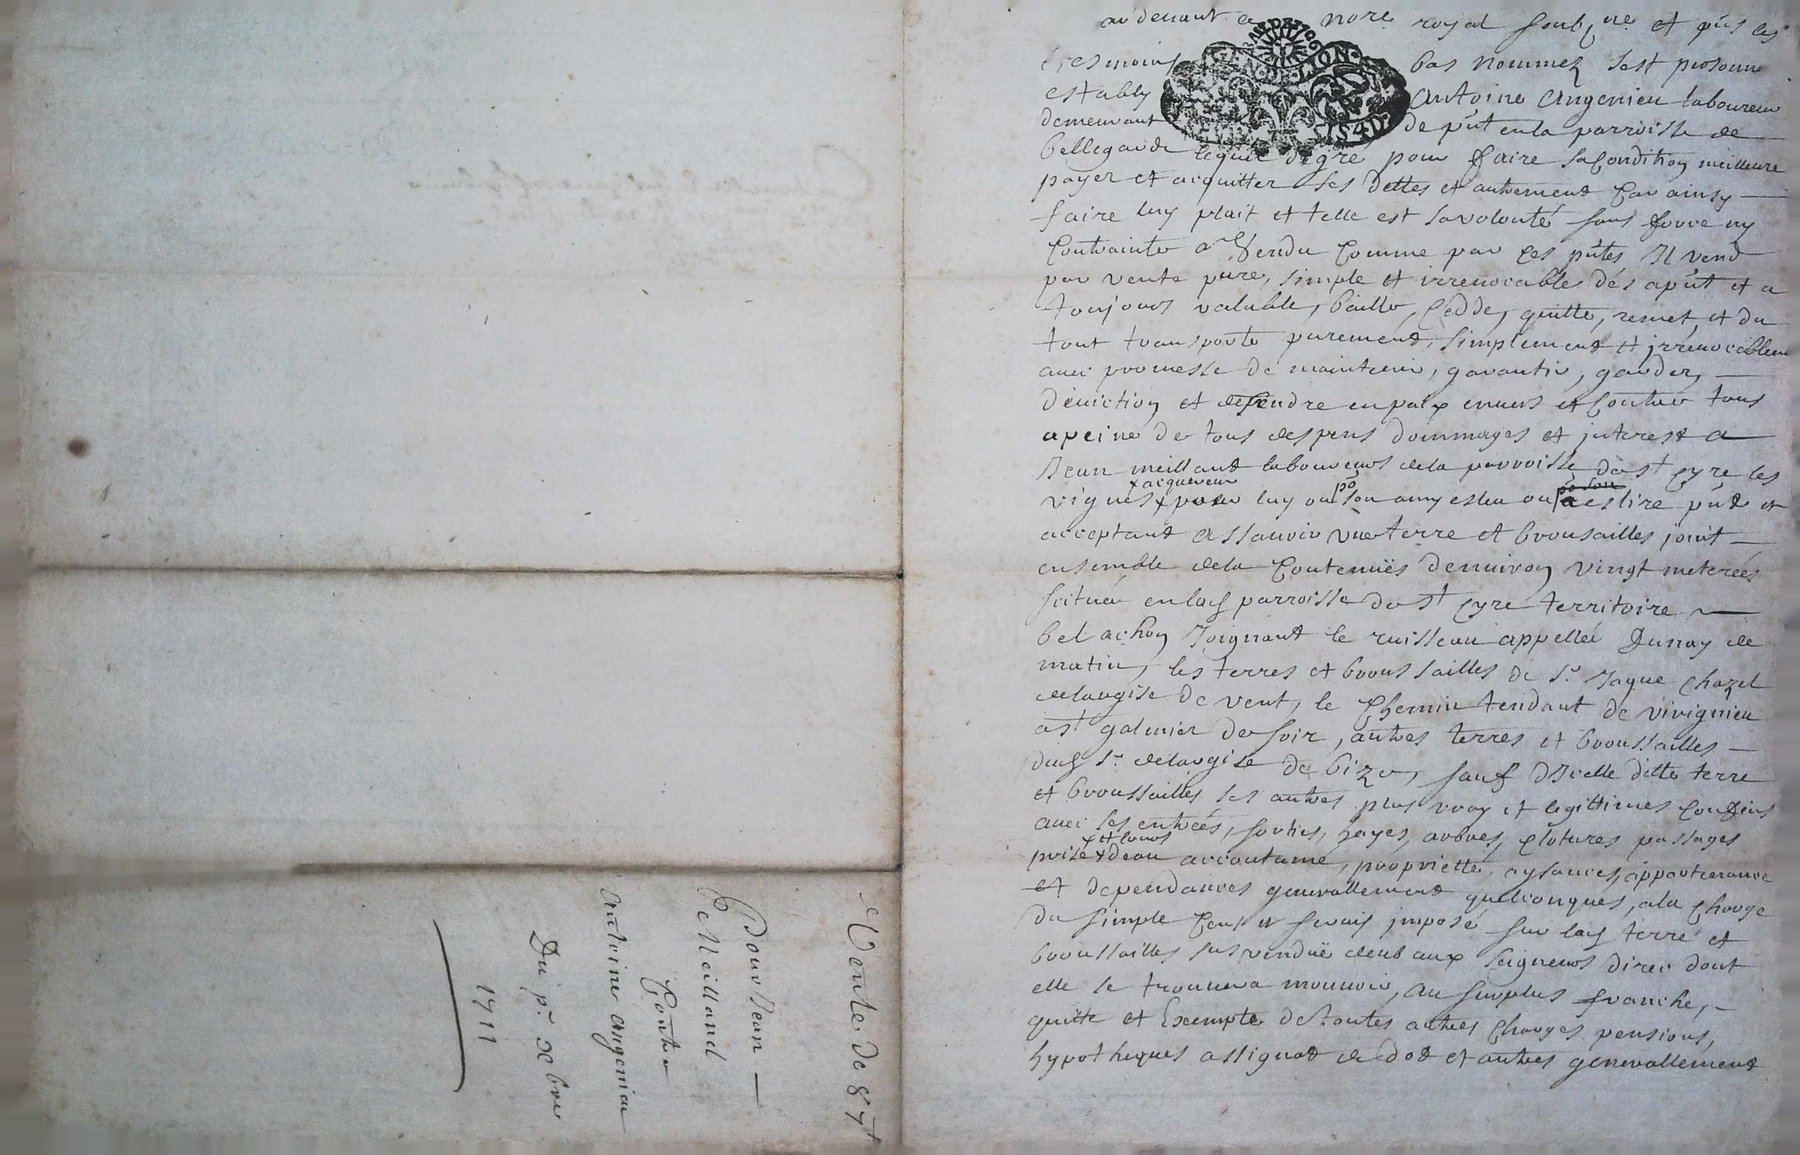 au devant le nore royal soubsne et pñs les
tesmoins bas nommez sest personne
estably Antoine Angenieu laboureur
demeurant de pñt en la parroisse de
bellegarde lequel de gre pour faire sa condition meilleure
payer et acquitter ses dettes et autrement car ainsy
faire luy plait et telle est sa volonté sans force ny
contrainte a vendu comme par ces pñtes Il vend
par vente pure, simple et irrevocable dés apñt et a
toujours valable, baille, cedde, quitte, remet, et du
tout transporte purement, simplement et jrrevocablem
avec promesse de maintenir, garantir, garder,
déviction et deffendre en paix envers et contre tous
a peine de tous despens dommages et jnterest a
Jean meilland laboureur de la parroisse de st cyre les
x acquereur
vignes x pour luy ou son amy esleu ou a eslire pñt et
acceptant assavoir une terre et brousailles joint
ensemble de la contenüe denviron vingt meterées
scituée en lad parroisse de st cyre territoire
bel achon Joignant le ruisseau appellé Dunay de
matin, les terres et broussailles de Sr Jaque chazel
delaugise de vent, le chemin tendant de vivignieu
a st galmier de soir, autres terres et broussailles
dud Sr delaugise de bize, sauf dIcelle ditte terre
et broussailles ses autres plus vray et legittimes confins
avec ses entrées, sorties, hayes, arbres, clôtures passages
x et cours
prise x deau accoutumé, proprietté, aysances, appartenance
et dependances generallement quelconques, a la charge
du simple cens et servis jmposé sur lad terre et
broussailles sus vendüe deub aux seigneurs direc dont
elle se trouvera mouvoir, au surplus franche,
quitte et Exempte de toutes autres charges pensions,
hypotheques assignat de dot et autres generallement
Vente de 87
Pour Jean
Meilland
Contre
Antoine angenieu
Du pr xbre
1711